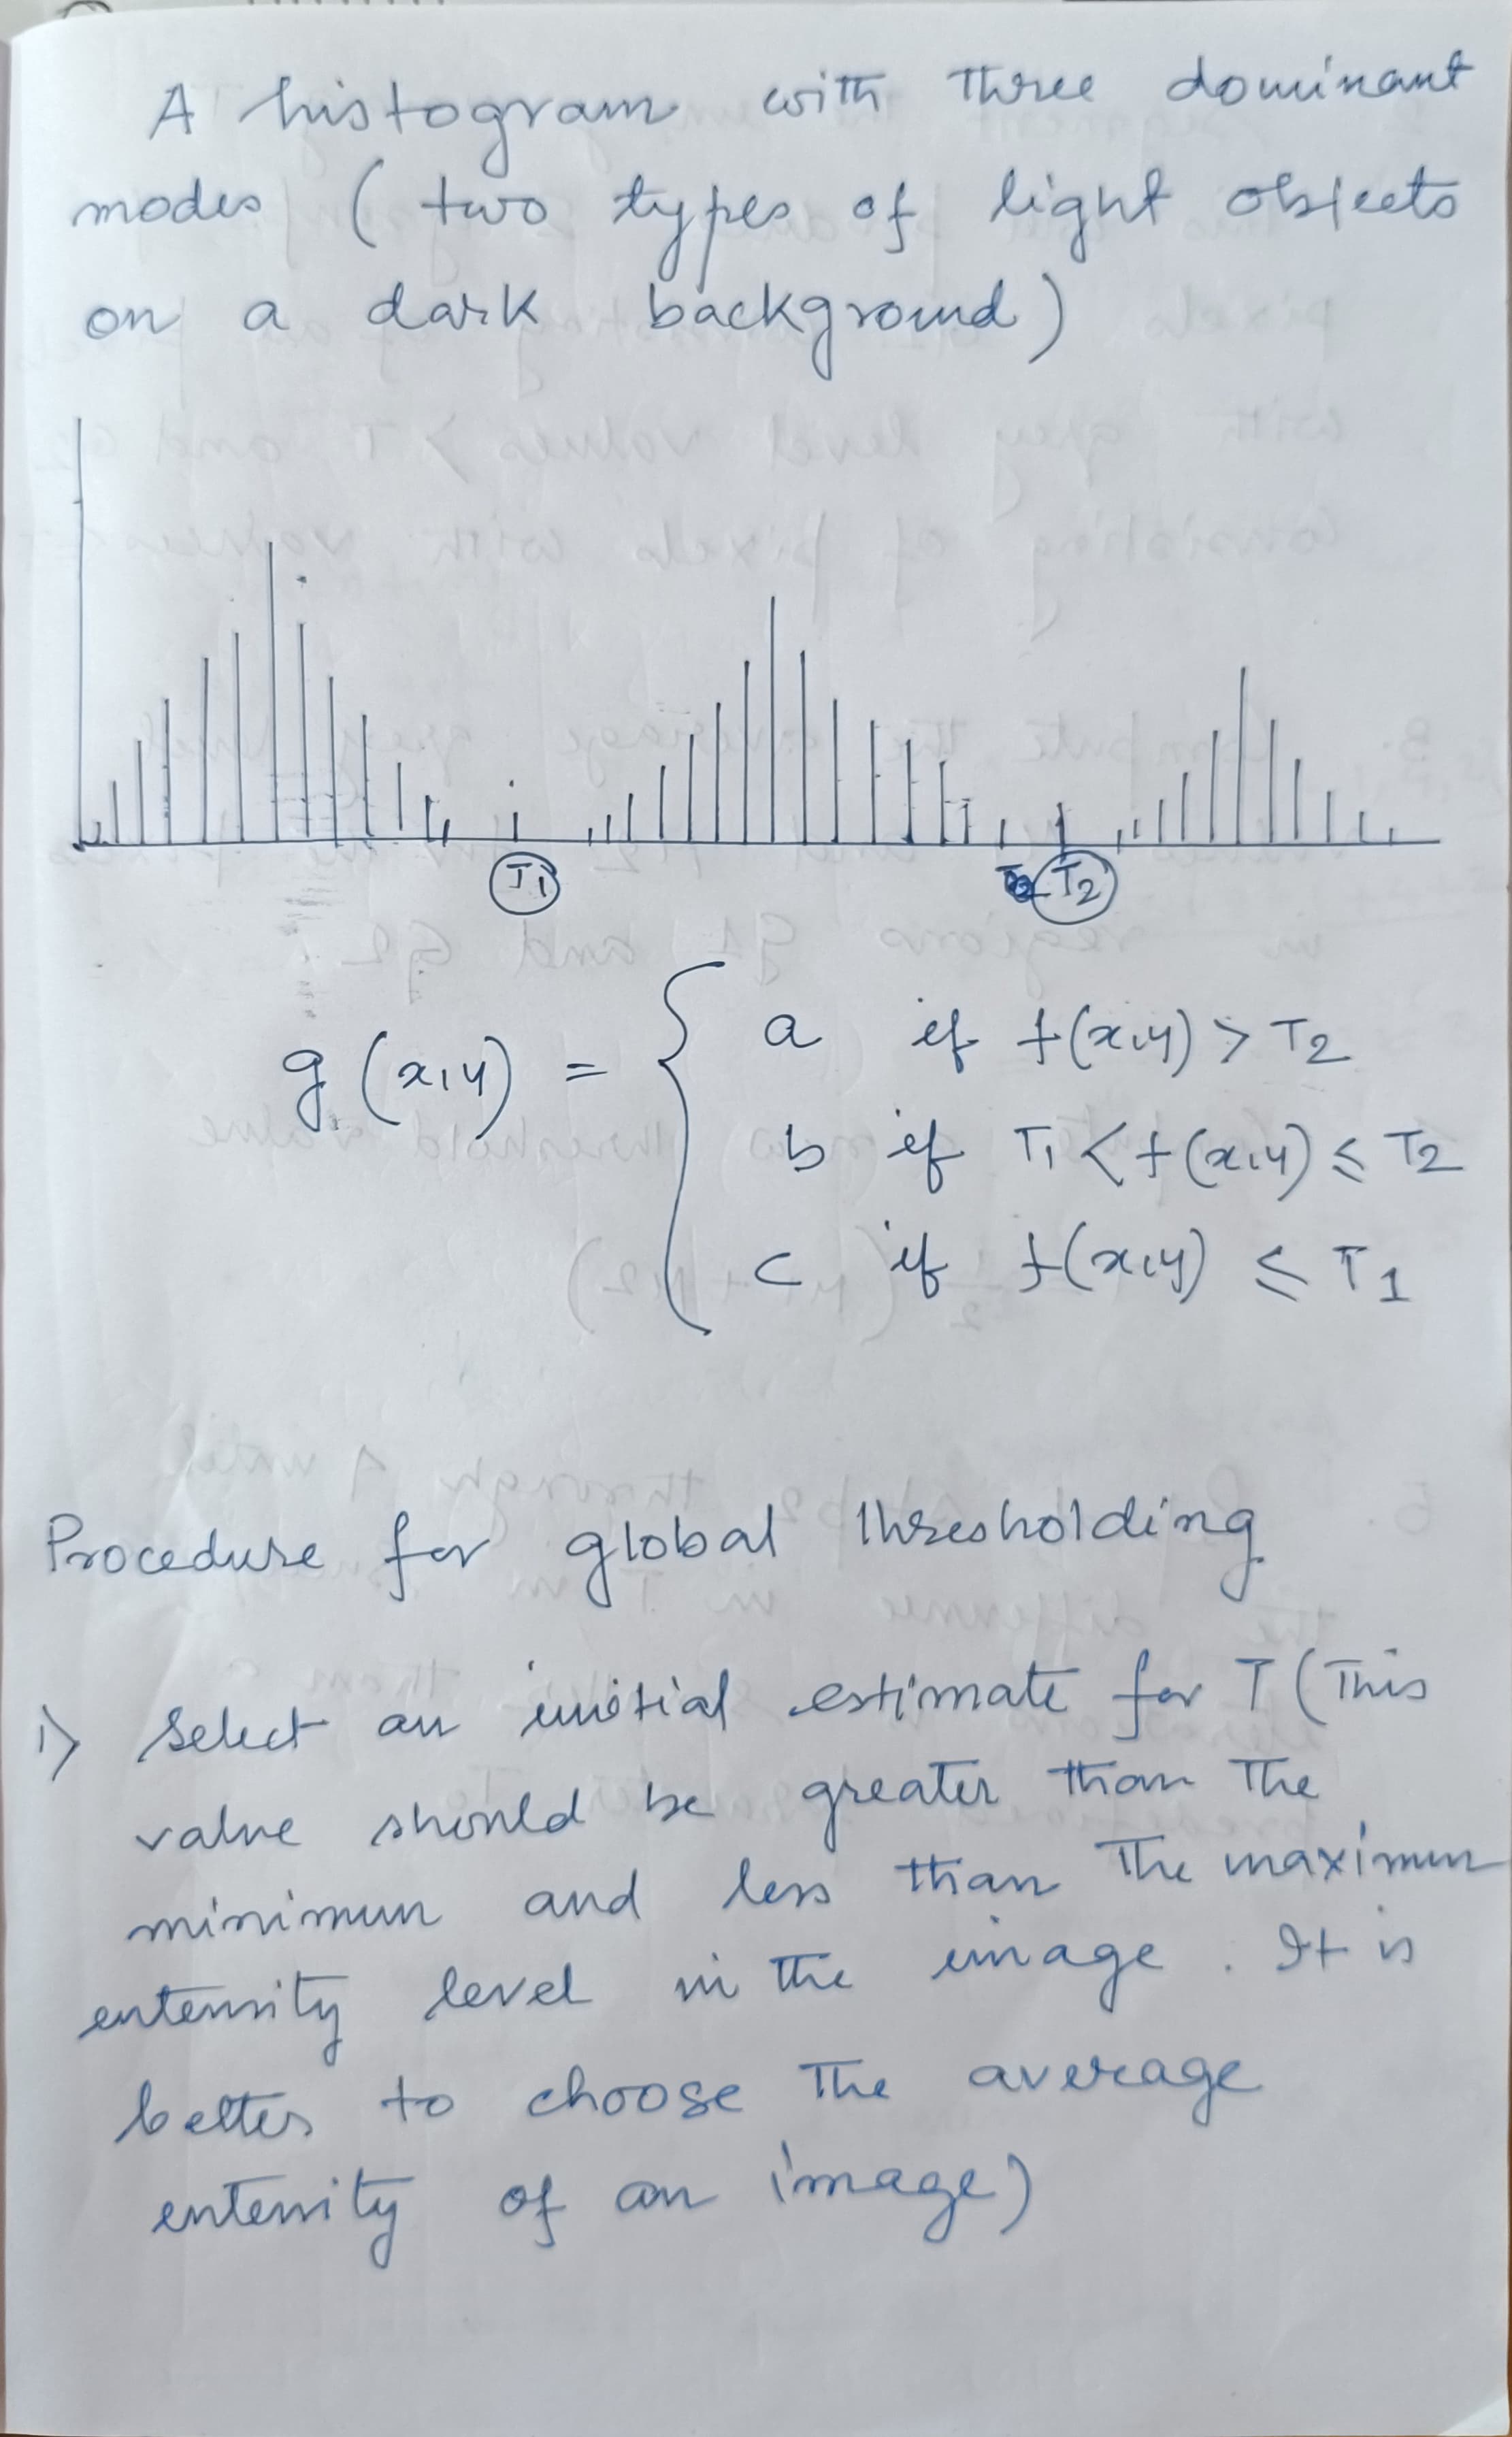 A histogram with three dominant
modes (two types of light objects
on a dark background)
T1 T2
g(x,y) = { a if f(x,y) > T2
b if T1 < f(x,y) ≤ T2
c if f(x,y) ≤ T1
Procedure for global thresholding
1) Select an initial estimate for T (This
value should be greater than the
minimum and less than the maximum
intensity level in the image. It is
better to choose the average
intensity of an image)